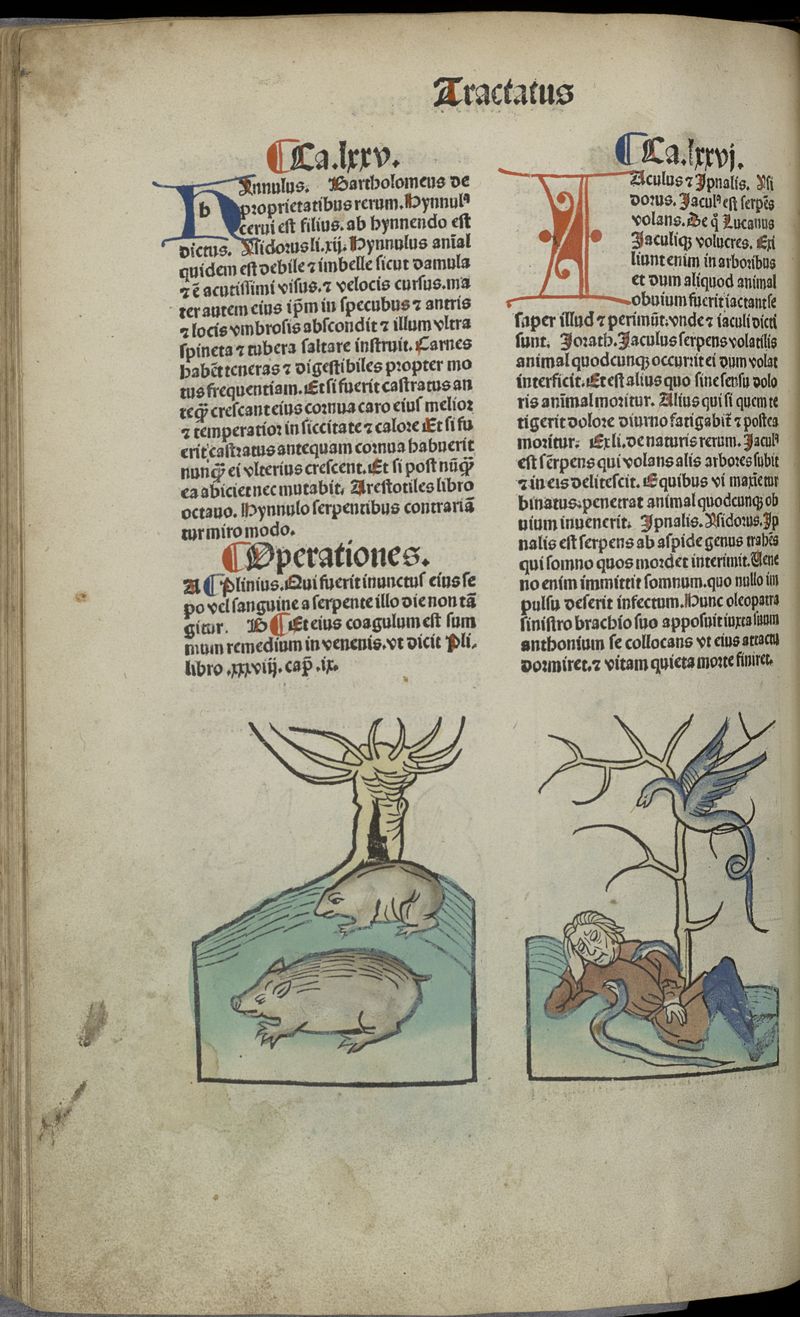 Tractatus
¶Ca.lxxv.
h
Jnnulus. Bartholomeus de
proprietatibus rerum. Hynnulꝰ
cerui est filius. ab hynnendo est
dictus. Ysidorus li.xij. Hynnulus aīal
quidem est debile ⁊ imbelle sicut damula
⁊ ē acutissimi visus. ⁊ velocis cursus. ma
ter autem eius ip̄m in specubus ⁊ antris
⁊ locis vmbrosis abscondit ⁊ illum vltra
spineta ⁊ tubera saltare instruit. Carnes
habēt teneras ⁊ digestibiles propter mo
tus frequentiam. Et si fuerit castratus an
teq̄ȝ crescant eius cornua caro eius melior
⁊ temperatior in siccitate ⁊ calore Et si fu
erit castratus antequam cornua habuerit
nunq̄ȝ ei vlterius crescent. Et si post nūq̄ȝ
ea abiciet nec mutabit. Arestotiles libro
octauo. Hynnulo serpentibus contrariā
tur miro modo.
¶Operationes.
A ¶Plinius. Qui fuerit inunctus eius se
po vel sanguine a serpente illo die non tā
gitur. B ¶Et eius coagulum est sum
mum remedium in venenis. vt dicit Pli.
libro .xxviij. cap̄ .ix.
¶Ca.lxxvj.
I
Aculus ⁊ Jpnalis. Ysi
dorus. Jaculꝰ est serpēs
volans. De q̄ Lucanus
Jaculiqꝫ volucres. Exi
liunt enim in arboribus
et dum aliquod animal
obuium fuerit iactant se
super illud ⁊ perimūt. vnde ⁊ iaculi dicti
sunt. Jorath. Jaculus serpens volatilis
animal quodcunqꝫ occurrit ei dum volat
interficit. Et est alius quo sine sensu dolo
ris animal moritur. Alius qui si quem te
tigerit dolore diurno fatigabit̄ ⁊ postea
moritur. Ex li. de naturis rerum. Jaculꝰ
est serpens qui volans alis arbores subit
⁊ in eis delitescit. E quibus vi
binatus. penetrat animal quodcunqꝫ ob
uium inuenerit. Jpnalis. Ysidorus. Jp
nalis est serpens ab aspide genus trahēs
qui somno quos mordet interimit. Uene
no enim immittit somnum. quo nullo im
pulsu deserit infectum. Hunc oleopatra
sinistro brachio suo apposuit iuxta suum
anthonium se collocans vt eius attactu
dormiret. ⁊ vitam quieta morte finiret.